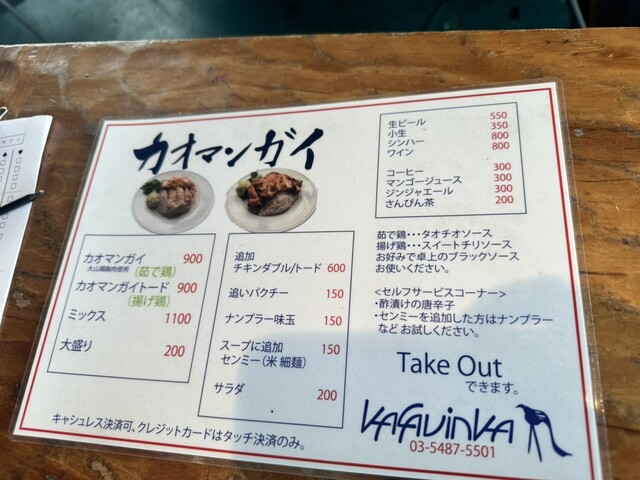 カオマンガイ
カオマンガイ 900
大山鶏胸肉使用 (茹で鶏)
カオマンガイトード 900
(揚げ鶏)
ミックス 1100
大盛り 200
追加
チキンダブル/トード 600
追いパクチー 150
ナンプラー味玉 150
スープに追加 150
センミー(米 細麺)
サラダ 200
キャシュレス決済可、クレジットカードはタッチ決済のみ。
生ビール 550
小生 350
シンハー 800
ワイン 800
コーヒー 300
マンゴージュース 300
ジンジャエール 300
さんぴん茶 200
茹で鶏・・・タオチオソース
揚げ鶏・・・スイートチリソース
お好みで卓上のブラックソース
お使いください。
<セルフサービスコーナー>
・酢漬けの唐辛子
・センミーを追加した方はナンプラー
など お試しください。
Take Out
できます。
KAFAVINKA
03-5487-5501